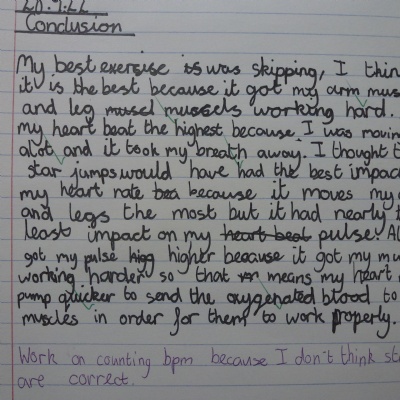 20.9.22
Conclusion
My best exersise is was skipping, I thin
it is the best because it got my arm mus
and leg musel mussels working hard.
my heart beat the highest because I was movin
alot and it took my breath away. I thought t
star jumps would have had the best impac
my heart rate bea because it moves my
and legs the most but it had nearly t
least impact on my heart beat pulse! Al
got my pulse higg higher because it got my mu
working harder so that means my heart
pump quicker to send the oxygenated blood to
muscles in order for them to work properly.
Work on counting bpm because I don't think st
are correct.